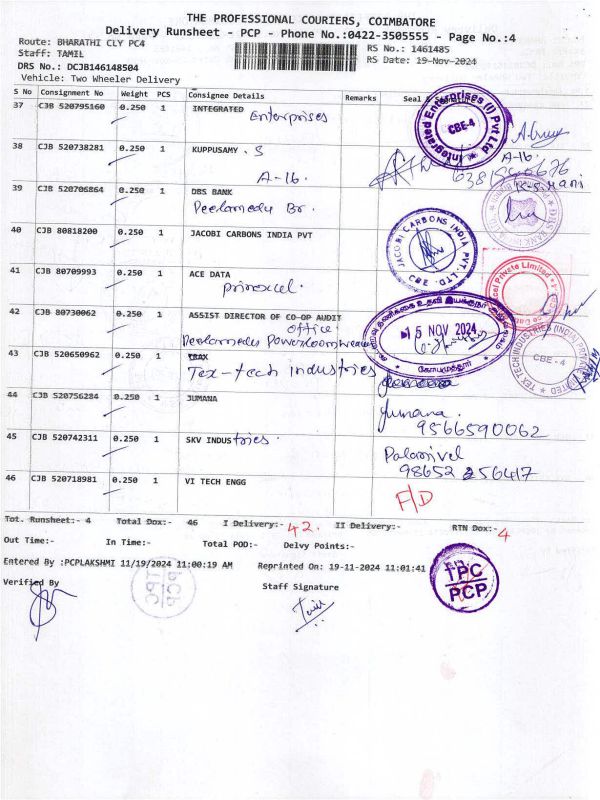 THE PROFESSIONAL COURIERS, COIMBATORE
Delivery Runsheet - PCP - Phone No.:0422-3505555 - Page No.:4
Route: BHARATHI CLY PC4
RS No.: 1461485
Staff: TAMIL
RS Date: 19-Nov-2024
DRS No.: DCJB146148504
Vehicle: Two Wheeler Delivery
S No Consignment No Weight PCS Consignee Details Remarks Seal &
37 CJB 520795160 0.250 1 INTEGRATED
Enterprises
Integrated Enterprises (I) Pvt Ltd
CBE-4
38 CJB 520738281 0.250 1 KUPPUSAMY . S
A-16.
A-16
39 CJB 520706864 0.250 1 DBS BANK
Peelamedu Br.
40 CJB 80818200 0.250 1 JACOBI CARBONS INDIA PVT
JACOBI CARBONS INDIA PVT. LTD.
CBE
41 CJB 80709993 0.250 1 ACE DATA
pinoxcel.
42 CJB 80730062 0.250 1 ASSIST DIRECTOR OF CO-OP AUDIT
office
Peelamedu Powerloom
15 NOV 2024
கோயமுத்தூர்
43 CJB 520650962 0.250 1 TRAX
Tex-tech industries
TEX TECH INDUSTRIES (INDIA) PRIVATE LIMITED
CBE - 4
44 CJB 520756284 0.250 1 JUMANA
Jumana.
9566590062
45 CJB 520742311 0.250 1 SKV INDUStries.
Palanivel
98652 256417
46 CJB 520718981 0.250 1 VI TECH ENGG
F/D
Tot. Runsheet:- 4 Total Dox:- 46 I Delivery:- 42. II Delivery:- RTN Dox:- 4
Out Time:- In Time:- Total POD:- Delvy Points:-
Entered By :PCPLAKSHMI 11/19/2024 11:00:19 AM Reprinted On: 19-11-2024 11:01:41
TPC
PCP
Verified By
Staff Signature